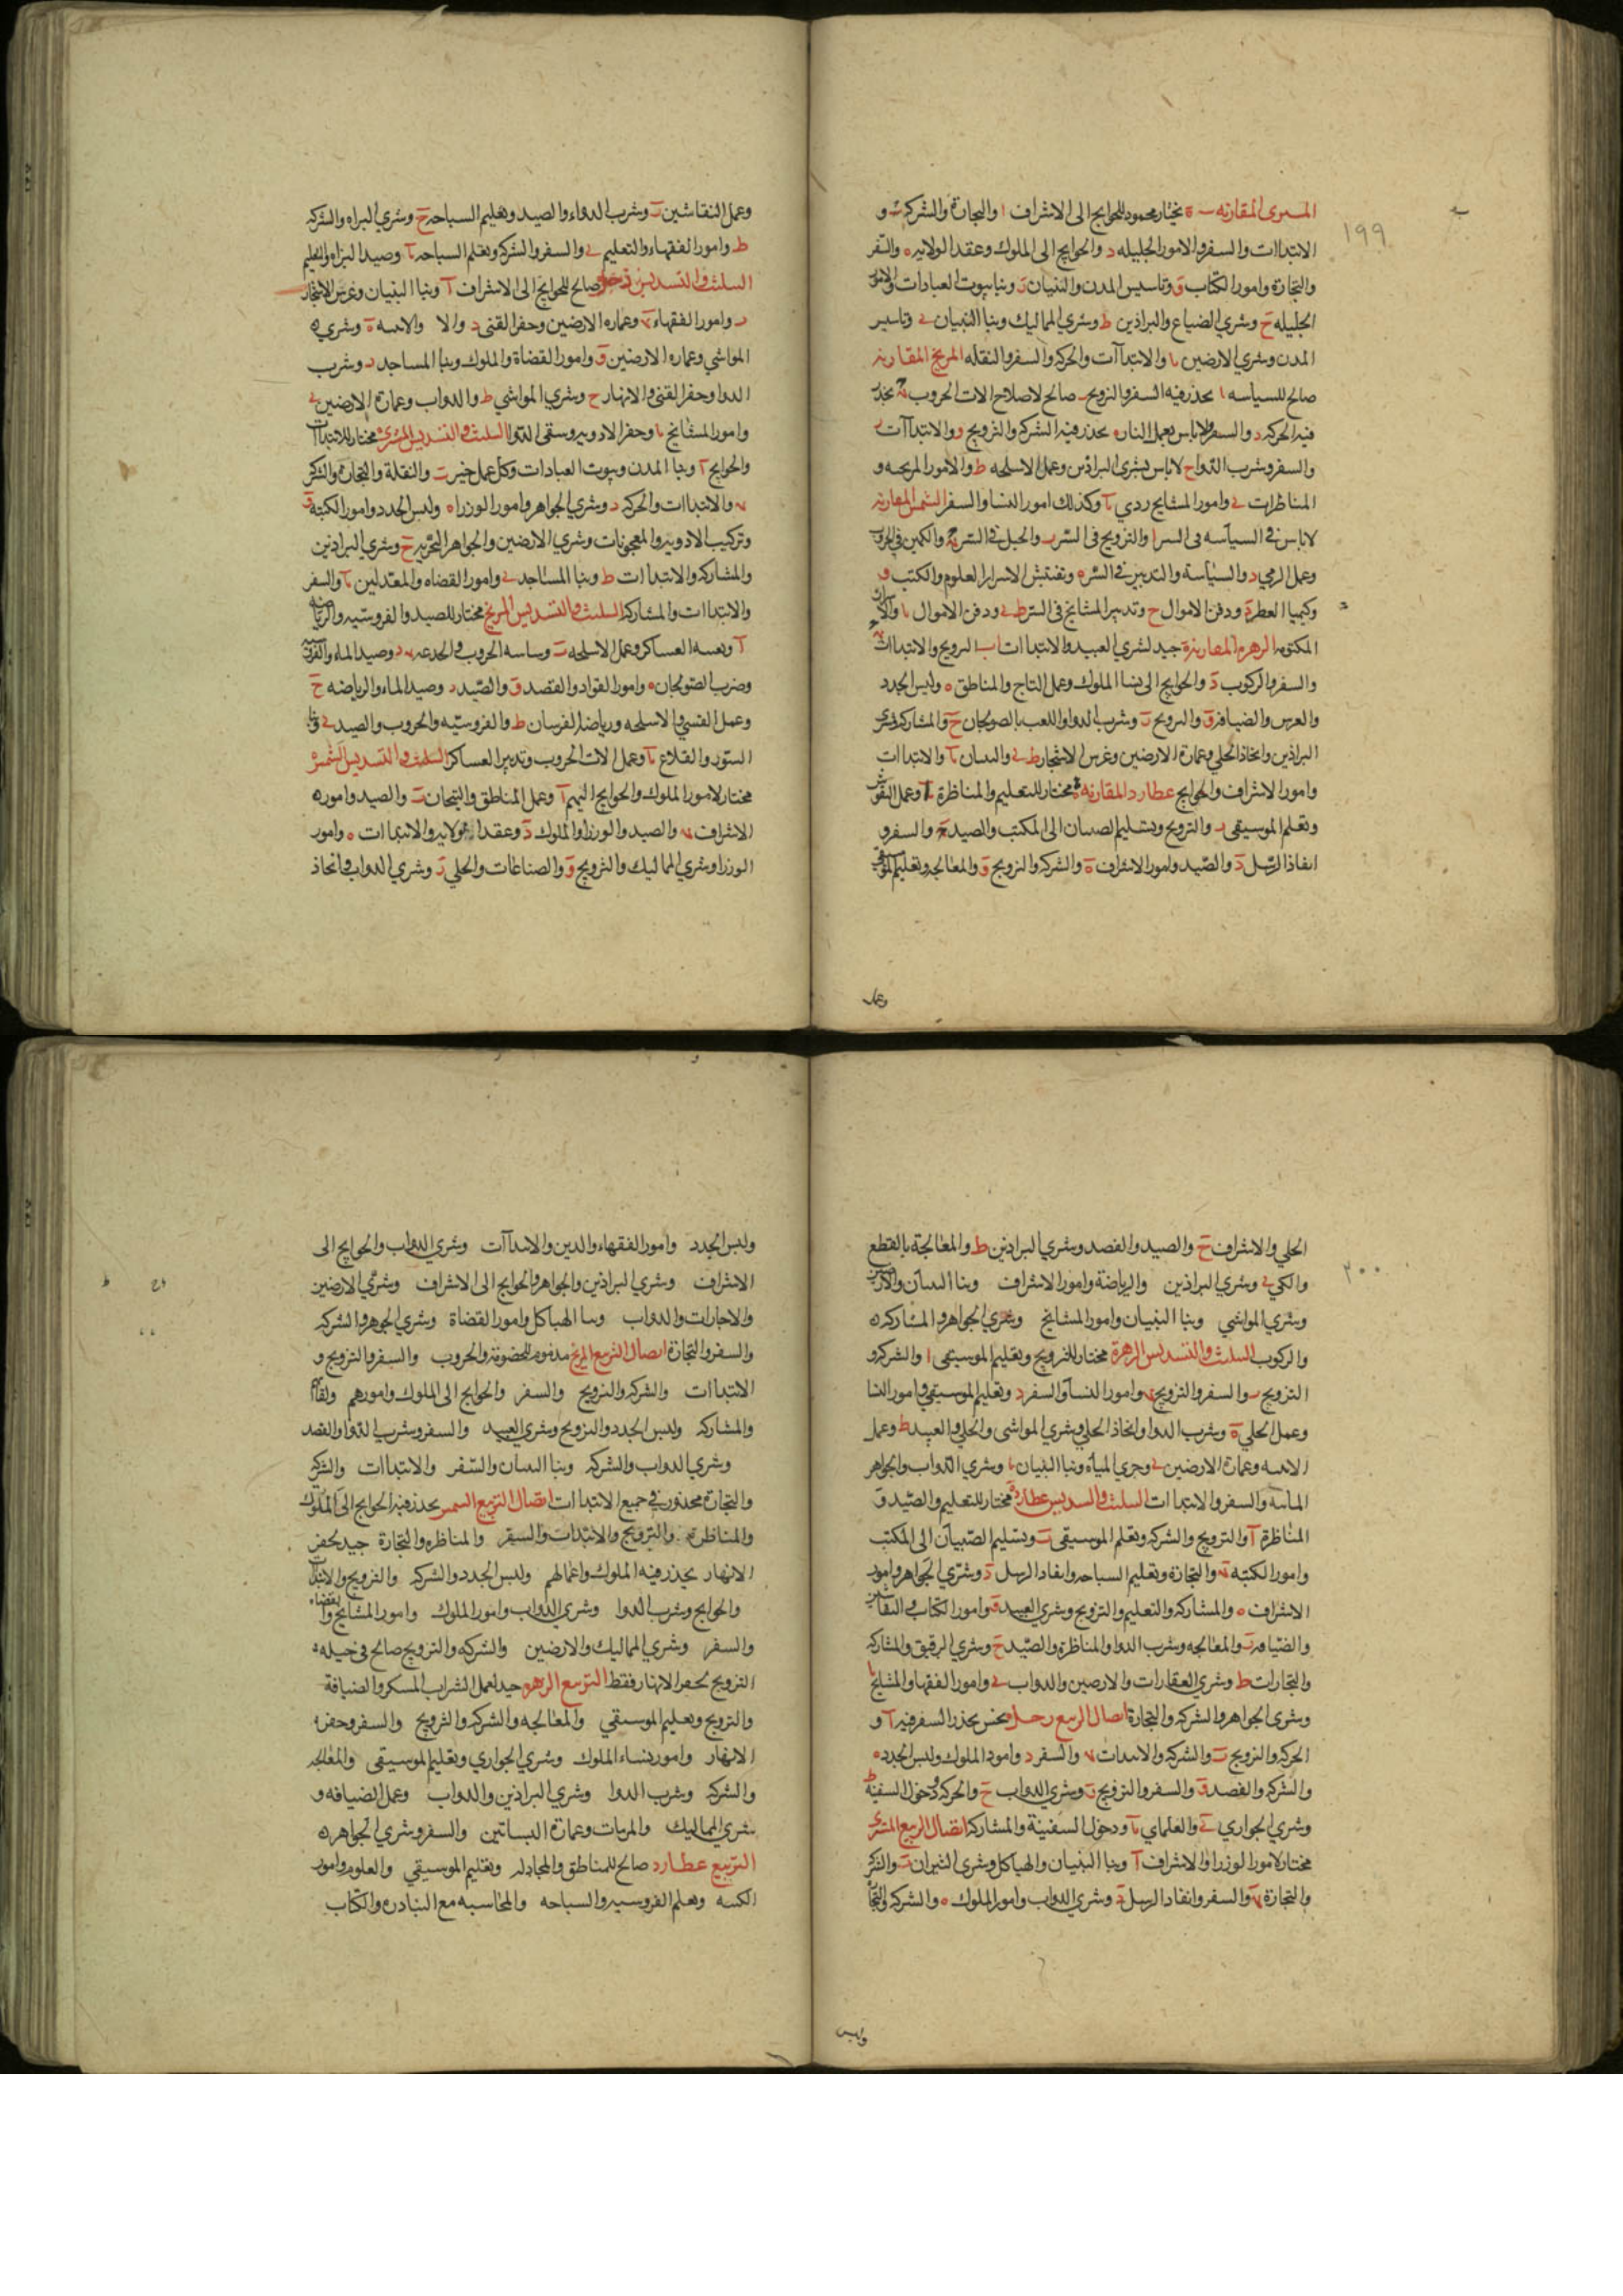 ١٩٩
المشترى المقارنه مختار محمود للحوايج الى الاشراف ا والتجارة والشركه و
الابتداات والسفر والامور الجليله د والحوايج الى الملوك وعقد الولايه ه والسفر
والتجارة وامور الكتاب و وتاسيس المدن والبنيان ز وبنا بيوت العبادات والامور
الجليله ح وشري الضياع والبراذين ط وشري المماليك وبنا البنيان ى وتاسيس
المدن وشري الارضين يا والابتداآت والحركه والسفر والنقله المريخ المقارنه
صالح للسياسه ا يحذر فيه السفر والتزويج ب صالح لاصلاح الات الحروب يحذر
فيه الحركه د والسفر ولاباس بعمل النار ه يحذر فيه الشركه والتزويج و والابتداآت
والسفر وشرب الدوا ح لاباس بشرى البراذين وعمل الاسلحه ط والامور المريخيه و
المناظرات ى وامور المشايخ ردي يا وكذلك امور النسا والسفر الشمس المقارنه
لاباس في السياسه في السر ا والتزويج في السر ب والحيل في السر والكمين في الحرب
وعمل الرمي د والسياسة والتدبير في السر ه وتفتيش الاسرار العلوم والكتب و
وكيميا العطر ودفن الاموال ح وتدبير المشايخ في السر ط ى ودفن الاموال يا والاسرار
المكتومه الزهره المقارنة جيد لشري العبيد والابتداات ا ب التزويج والابتداات
والسفر والركوب د والحوايج الى نسا الملوك وعمل التاج والمناطق ه ولبس الجدد
والعرس والضيافة و والتزويج ز وشرب الدوا واللعب بالصولجان ح والمشاركه وشرى
البراذين واتخاذ الحلي وعمارة الارضين وغرس الاشجار ط ى والبنيان يا والابتداات
وامور الاشراف والحوايج عطارد المقارنه مختار للتعليم والمناظرة ا وعمل النقوش
وتعلم الموسيقى ب والتزويج وتسليم الصبيان الى المكتب والصيد والسفر و
انفاذ الرسل د والصيد وامور الاشراف ه والشركه والتزويج و والمعالجه وتعليم الموسيقى
وعمل
وعمل النقاشين ز وشرب الدواء والصيد وتعليم السباحه ح وشري البزاه والشركه
ط وامور الفقهاء والتعليم ى والسفر والشركه وتعلم السباحه يا وصيد البزاه والتعليم
التثليث والتسديس زحل صالح للحوايج الى الاشراف ا وبنا البنيان وغرس الاشجار
ب وامور الفقهاء وعماره الارضين وحفر القنى د والا والابنيه ه وشري
المواشي وعماره الارضين و وامور القضاة والملوك وبنا المساجد ز وشرب
الدوا وحفر القنى والانهار ح وشري المواشي ط والدواب وعمارة الارضين ى
وامور المشايخ يا وحفر الادوير وسقى الدوا التثليث والتسديس المشترى مختار للابتداآت
والحوايج ا وبنا المدن وبيوت العبادات وكل عمل خير ب والنقلة والتجارة والشركه
والابتداات والحركه د وشري الجواهر وامور الوزراء ه ولبس الجدد وامور الكتبة و
وتركيب الادويه والمعجونات وشري الارضين والجواهر البحريه ح وشري البراذين
والمشاركه والابتداات ط وبنا المساجد ى وامور القضاه والمعدلين يا والسفر
والابتداات والمشاركه التثليث والتسديس المريخ مختار للصيد والفروسيه والرياضه
ا وتعبيه العساكر وعمل الاسلحه ب وساسه الحروب والخدعه د وصيد الماء والفروسيه
وضرب الصولجان ه وامور القواد والفصد و والصيد ز وصيد الماء والرياضه ح
وعمل القسي والاسلحه ورياضة الفرسان ط والفروسيه والحروب والصيد ى وبنا
السور والقلاع يا وعمل الات الحروب وتدبير العساكر التثليث والتسديس الشمس
مختار لامور الملوك والحوايج اليهم ا وعمل المناطق والتيجان ب والصيد وامور
الاشراف والصيد والوزرا والملوك د وعقد الولايه والابتداات ه وامور
الوزرا وشري المماليك والتزويج و والصناعات والحلي ز وشري الدواب واتخاذ
٢٠٠
الحلي والاشراف ح والصيد والفصد وشري البراذين ط والمعالجة بالقطع
والكي ى وشري البراذين والرياضة وامور الاشراف وبنا البنيان والارضين
وشري المواشي وبنا البنيان وامور المشايخ وشري الجواهر والمشاركه
والركوب التثليث والتسديس الزهرة مختار للتزويج وتعليم الموسيقى ا والشركه و
التزويج ب والسفر والتزويج وامور النسا والسفر د وتعليم الموسيقي وامور النسا
وعمل الحلي ه وشرب الدوا واتخاذ الحلي وشري المواشى والحلي والعبيد ط وعمل
الابنيه وعمارة الارضين ى وجري المياه وبنا البنيان يا وشري الدواب والجواهر
المائيه والسفر والابتداات التثليث والتسديس عطارد مختار للتعليم والصيد و
المناظرة ا والتزويج والشركه وتعلم الموسيقى ب وتسليم الصبيان الى المكتب
وامور الكتبه والتجارة وتعليم السباحه وانفاد الرسل د وشري الجواهر وامور
الاشراف ه والمشاركه والتعليم والتزويج وشري العبيد و وامور الكتاب والنقاشين
والضيافه ز والمعالجه وشرب الدوا والمناظره والصيد ح وشري الرقيق والمشاركه
والتجارات ط وشري العقارات والارضين والدواب ى وامور الفقها والمشايخ يا
وشري الجواهر والشركه والتجارة اتصال الربيع زحل نحس يحذر السفر فيه ا و
الحركه والتزويج ب والشركه والابتدات والسفر د وامور الملوك ولبس الجدد ه
والشركه والفصد و والسفر والتزويج ز وشري الدواب ح والحركه ودخول السفينه ط
وشري الجواري ى والغلماي يا ودخول السفينة والمشاركه اتصال الربيع المشترى
مختار لامور الوزرا والاشراف ا وبنا البنيان والهياكل وشري الثيران ب والشركه
والتجارة والسفر وانفاد الرسل د وشري الدواب وامور الملوك ه والشركه والتجارة
ولبس
ولبس الجدد وامور الفقهاء والدين والابتداآت وشري الدواب والحوايج الى
الاشراف وشري البراذين والجواهر والحوايج الى الاشراف وشري الارضين
والاجارات والدواب وبنا الهياكل وامور القضاة وشري الجوهر والشركه
والسفر والتجارة اتصال التربيع المريخ مذموم للخصومة والحروب والسفر والتزويج و
الابتداات والشركه والتزويج والسفر والحوايج الى الملوك وامورهم ولقاهم
والمشاركه ولبس الجدد والتزويج وشري العبيد والسفر وشرب الدوا والفصد
وشري الدواب والشركه وبنا البنيان والسفر والابتداات والشركه
والتجارة محذور في جميع الابتداات اتصال التربيع الشمس يحذر فيه الحوايج الى الملوك
والمناظره والتزويج والابتدات والسفر والمناظره والتجارة جيد لحفر
الانهار يحذر فيه الملوك واعمالهم ولبس الجدد والشركه والتزويج والابتداات
والحوايج وشرب الدوا وشري الدواب وامور الملوك وامور المشايخ والقضاه
والسفر وشري المماليك والارضين والشركه والتزويج صالح في حيله
التزويج لحفر الانهار فقط التربيع الزهره جيد لعمل الشراب المسكر والضيافة
والتزويج وتعليم الموسيقي والمعالجه والشركه والتزويج والسفر وحفر
الانهار وامور نساء الملوك وشري الجواري وتعليم الموسيقى والمعالجه
والشركه وشرب الدوا وشري البراذين والدواب وعمل الضيافه و
شري المماليك والمربات وعمارة البساتين والسفر وشري الجواهر
التربيع عطارد صالح للمناطق والمجادله وتعليم الموسيقي والعلوم وامور
الكتبه وتعلم الفروسيه والسباحه والمحاسبه مع البنادره والكتاب